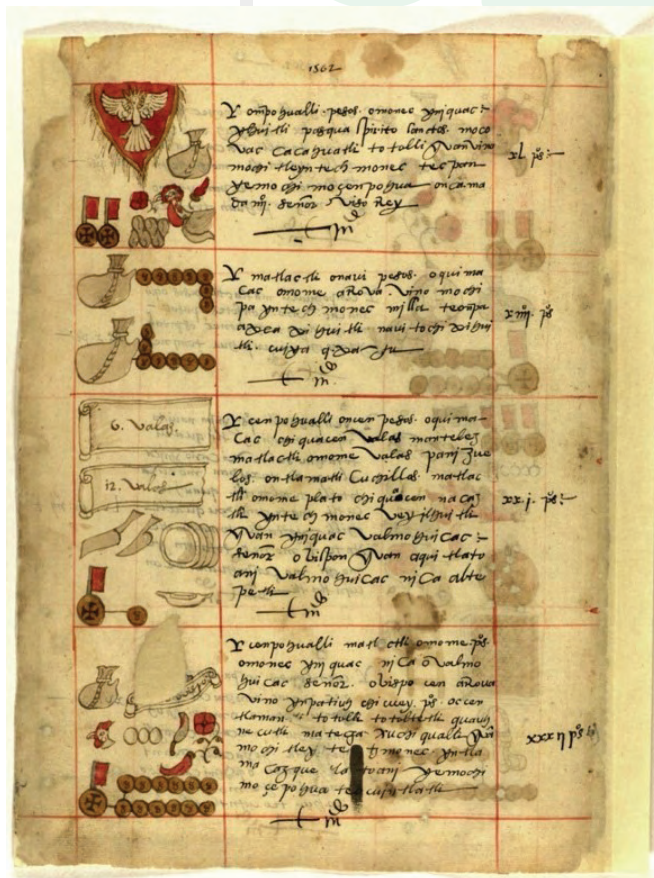 1562
Y ompohualli pesos omonec yniquac
ylhuitli pasqua spirito sanctos moco
vac cacahuatli totolli yvan vino
mochi tleyntech monec tecpan
yemochi moçenpohua onca ma
da mj. señor viso Rey
xl ps
Y matlactli onavi pesos. oquima
cac omome arova vino mochi
pa yntech monec missa teotipa
axca xihuitli navi tochi xihui
tli.
xiiij. ps
6. valas.
12. valas
Y cenpohualli oncen pesos. oquima
cac chiquacen valas manteles
matlactli omome valas panizue
los. ontlamatli Cuchillos. matlac
tli omome plato chiquacen nacaz
tli yntech monec veyilhuitli
yvan yniquac valmohuicac
señor obispon yvan aqui tlato
ani valmohuicac nica alte
petli
xx.j. ps
Y cenpohualli matlactli omome ps.
omonec yniquac nica ovalmo
huicac señor. obispo cen arova
vino ynpatiuh chicuey. ps. occen
tlaman totolli totoltetli quauh
necutli mateca xuchiqualli yvan
mochi tley monec yntla
macazque tlatoani yemochi
moçepohua teocuitlatli
xxxij ps